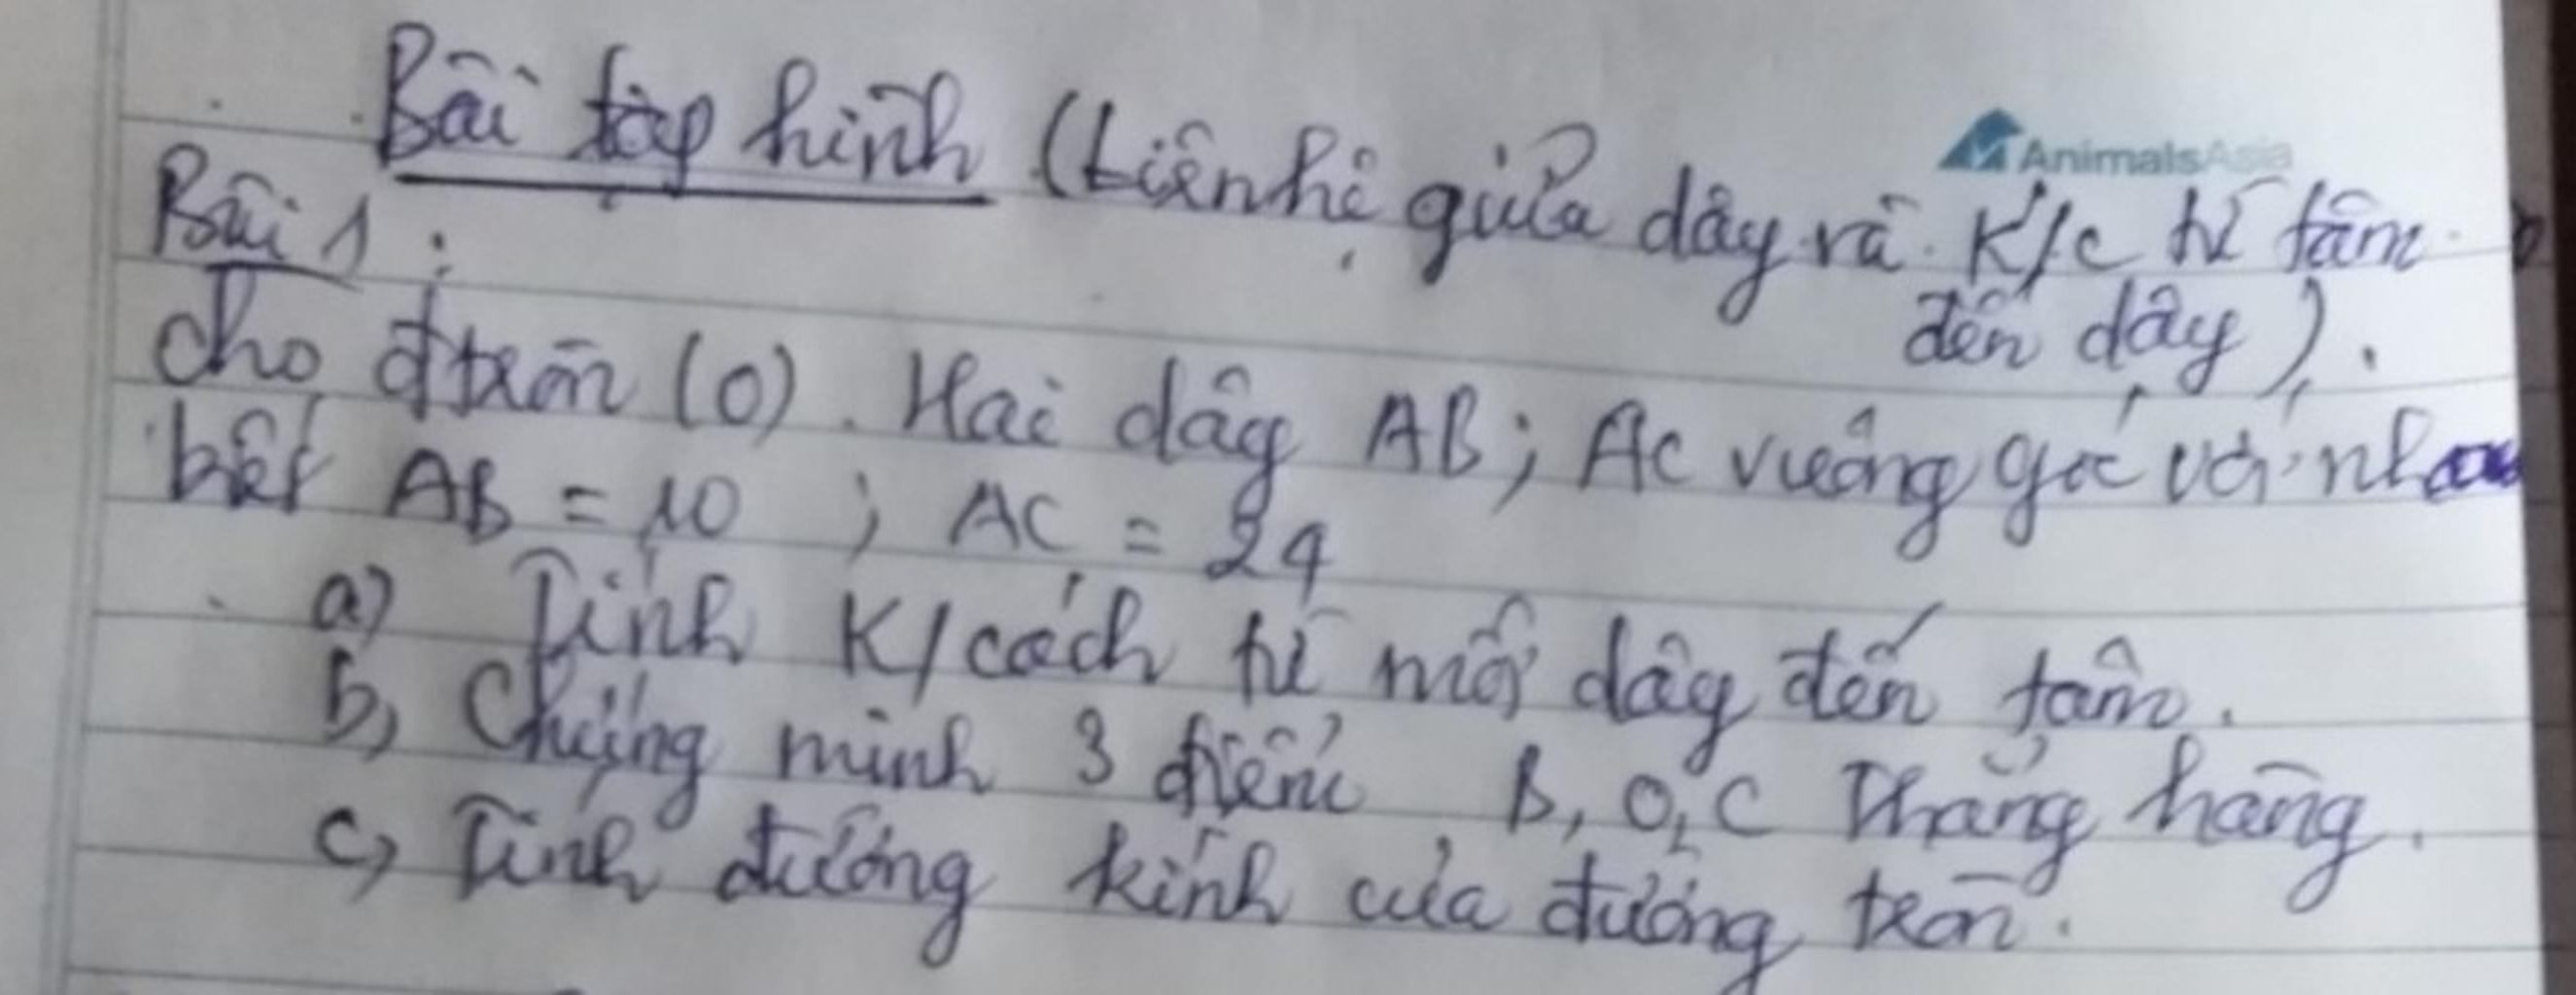 Bài tập hình (Liên hệ giữa dây và K/c từ tâm
đến dây).
AnimalsAsia
Bài 1:
Cho đtròn (O). Hai dây AB; AC vuông góc với nhau
biết AB = 10 ; AC = 24
a) Tính K/cách từ mỗi dây đến tâm.
b, Chứng minh 3 điểm B, O, C thẳng hàng.
c, Tính đường kính của đường tròn.